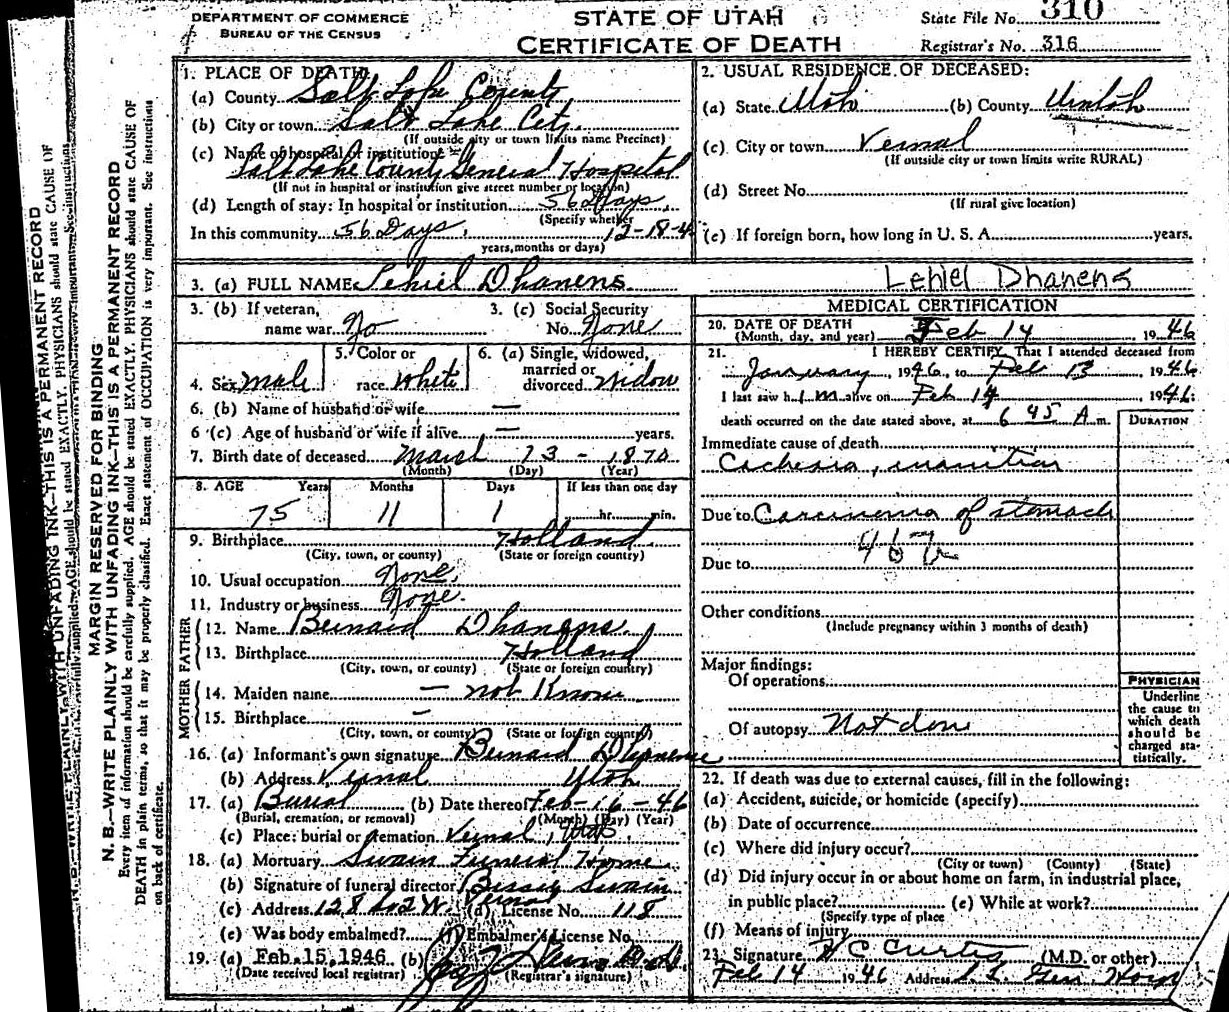 DEPARTMENT OF COMMERCE
BUREAU OF THE CENSUS
STATE OF UTAH
CERTIFICATE OF DEATH
State File No. 310
Registrar's No. 316
MARGIN RESERVED FOR BINDING
N. B.—WRITE PLAINLY WITH UNFADING INK—THIS IS A PERMANENT RECORD
Every item of information should be carefully supplied. AGE should be stated EXACTLY. PHYSICIANS should state CAUSE OF
DEATH in plain terms, so that it may be properly classified. Exact statement of OCCUPATION is very important. See instructions
on back of certificate.
1. PLACE OF DEATH
(a) County Salt Lake County
(b) City or town Salt Lake City.
(If outside city or town limits name Precinct)
(c) Name of hospital or institution:
Salt Lake County General Hospital
(If not in hospital or institution give street number or location)
(d) Length of stay: In hospital or institution 56 Days.
(Specify whether
In this community 56 Days. 12-18-4
years, months or days)
2. USUAL RESIDENCE OF DECEASED:
(a) State Utah (b) County Uintah
(c) City or town Vernal
(If outside city or town limits write RURAL)
(d) Street No.
(If rural give location)
(e) If foreign born, how long in U. S. A. years.
3. (a) FULL NAME Lehiel Dhanens.
Lehiel Dhanens
3. (b) If veteran, name war No
3. (c) Social Security No. None
4. Sex Male
5. Color or race White
6. (a) Single, widowed, married or divorced Widow
6. (b) Name of husband or wife —
6 (c) Age of husband or wife if alive — years.
7. Birth date of deceased March 13 - 1870
(Month) (Day) (Year)
8. AGE Years Months Days If less than one day
75 11 1 hr. min.
9. Birthplace Holland
(City, town, or county) (State or foreign country)
10. Usual occupation None.
11. Industry or business None.
FATHER
12. Name Bernard Dhanens.
13. Birthplace Holland
(City, town, or county) (State or foreign country)
MOTHER
14. Maiden name — not Known
15. Birthplace —
(City, town, or county) (State or foreign country)
16. (a) Informant's own signature Bernard Dhanens
(b) Address Vernal Utah
17. (a) Burial (b) Date thereof Feb-16-46
(Burial, cremation, or removal) (Month) (Day) (Year)
(c) Place: burial or cremation Vernal, Utah.
18. (a) Mortuary Swain Funeral Home
(b) Signature of funeral director Swain
Vernal
(c) Address 128 W. (d) License No. 118
(e) Was body embalmed? (f) Embalmer's License No.
19. (a) Feb. 15, 1946 (b)
(Date received local registrar) (Registrar's signature)
MEDICAL CERTIFICATION
20. DATE OF DEATH Feb 14 1946
(Month, day, and year)
21. I HEREBY CERTIFY, That I attended deceased from
January, 1946, to Feb 13, 1946
I last saw h im alive on Feb 14 1946:
death occurred on the date stated above, at 6 45 A m.
DURATION
Immediate cause of death
Cachexia, inanition
Due to Carcinoma of stomach
46
Due to
Other conditions
(Include pregnancy within 3 months of death)
Major findings:
Of operations
Of autopsy Not done
PHYSICIAN
Underline
the cause to
which death
should be
charged sta-
tistically.
22. If death was due to external causes, fill in the following:
(a) Accident, suicide, or homicide (specify)
(b) Date of occurrence
(c) Where did injury occur?
(City or town) (County) (State)
(d) Did injury occur in or about home on farm, in industrial place,
in public place? (e) While at work?
(Specify type of place
(f) Means of injury
23. Signature H C Curtis (M.D. or other)
Feb 14 1946 Address S. L. Gen. Hosp